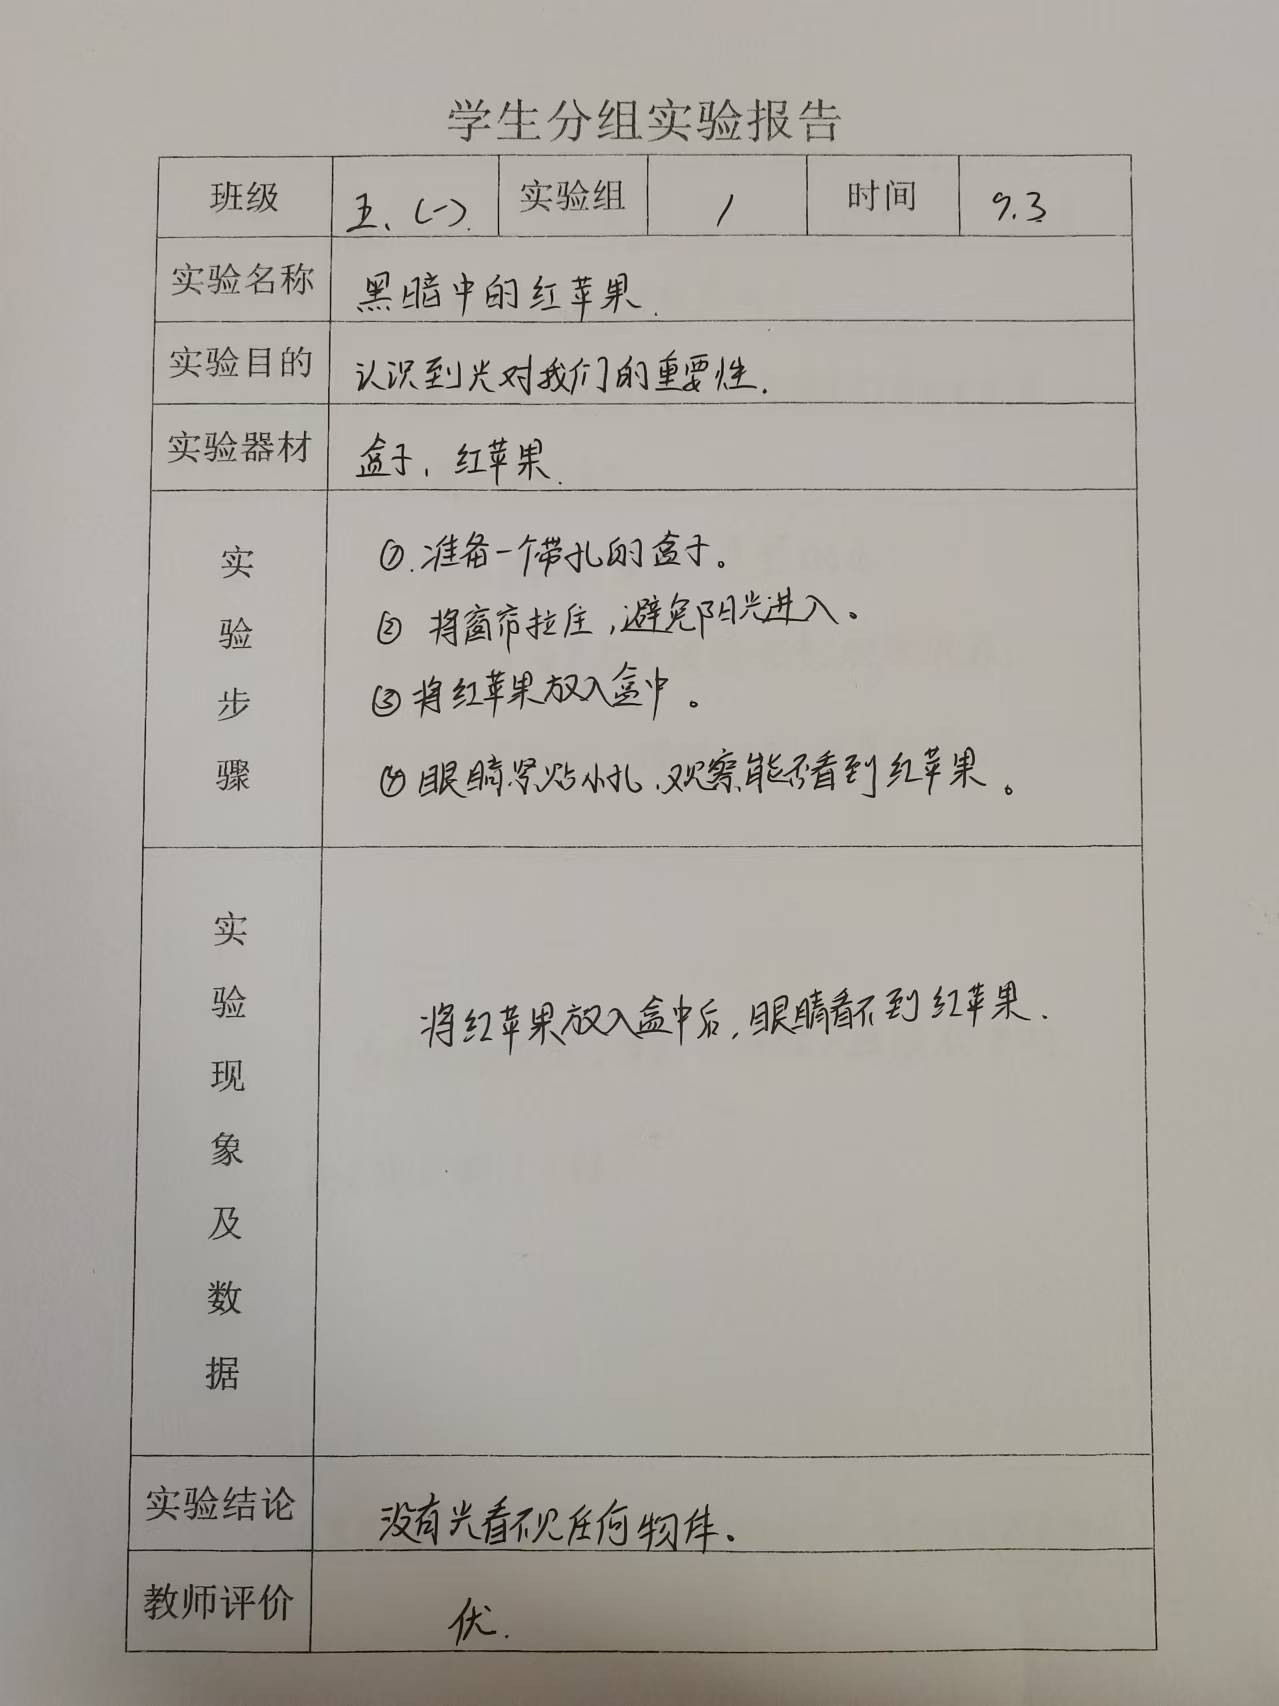 学生分组实验报告
班级 五.(一). 实验组 1 时间 9.3
实验名称 黑暗中的红苹果.
实验目的 认识到光对我们的重要性.
实验器材 盒子,红苹果.
实验步骤
①.准备一个带孔的盒子。
② 将窗帘拉住,避免阳光进入。
③ 将红苹果放入盒中。
④ 眼睛紧贴小孔.观察能否看到红苹果。
实验现象及数据
将红苹果放入盒中后,眼睛看不到红苹果.
实验结论 没有光看不见任何物体。
教师评价 优.